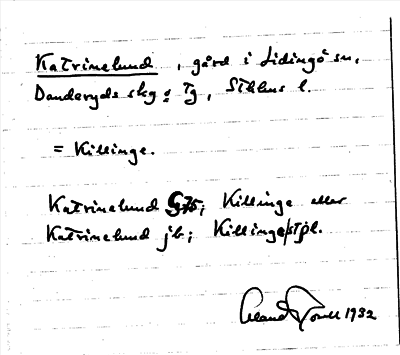 Katrinelund, gård i Lidingö sn,
Danderyds skg o Tg, Sthlms l.
= Killinge.
Katrinelund G75; Killinge eller
Katrinelund jb; Killinge stpl.
1932